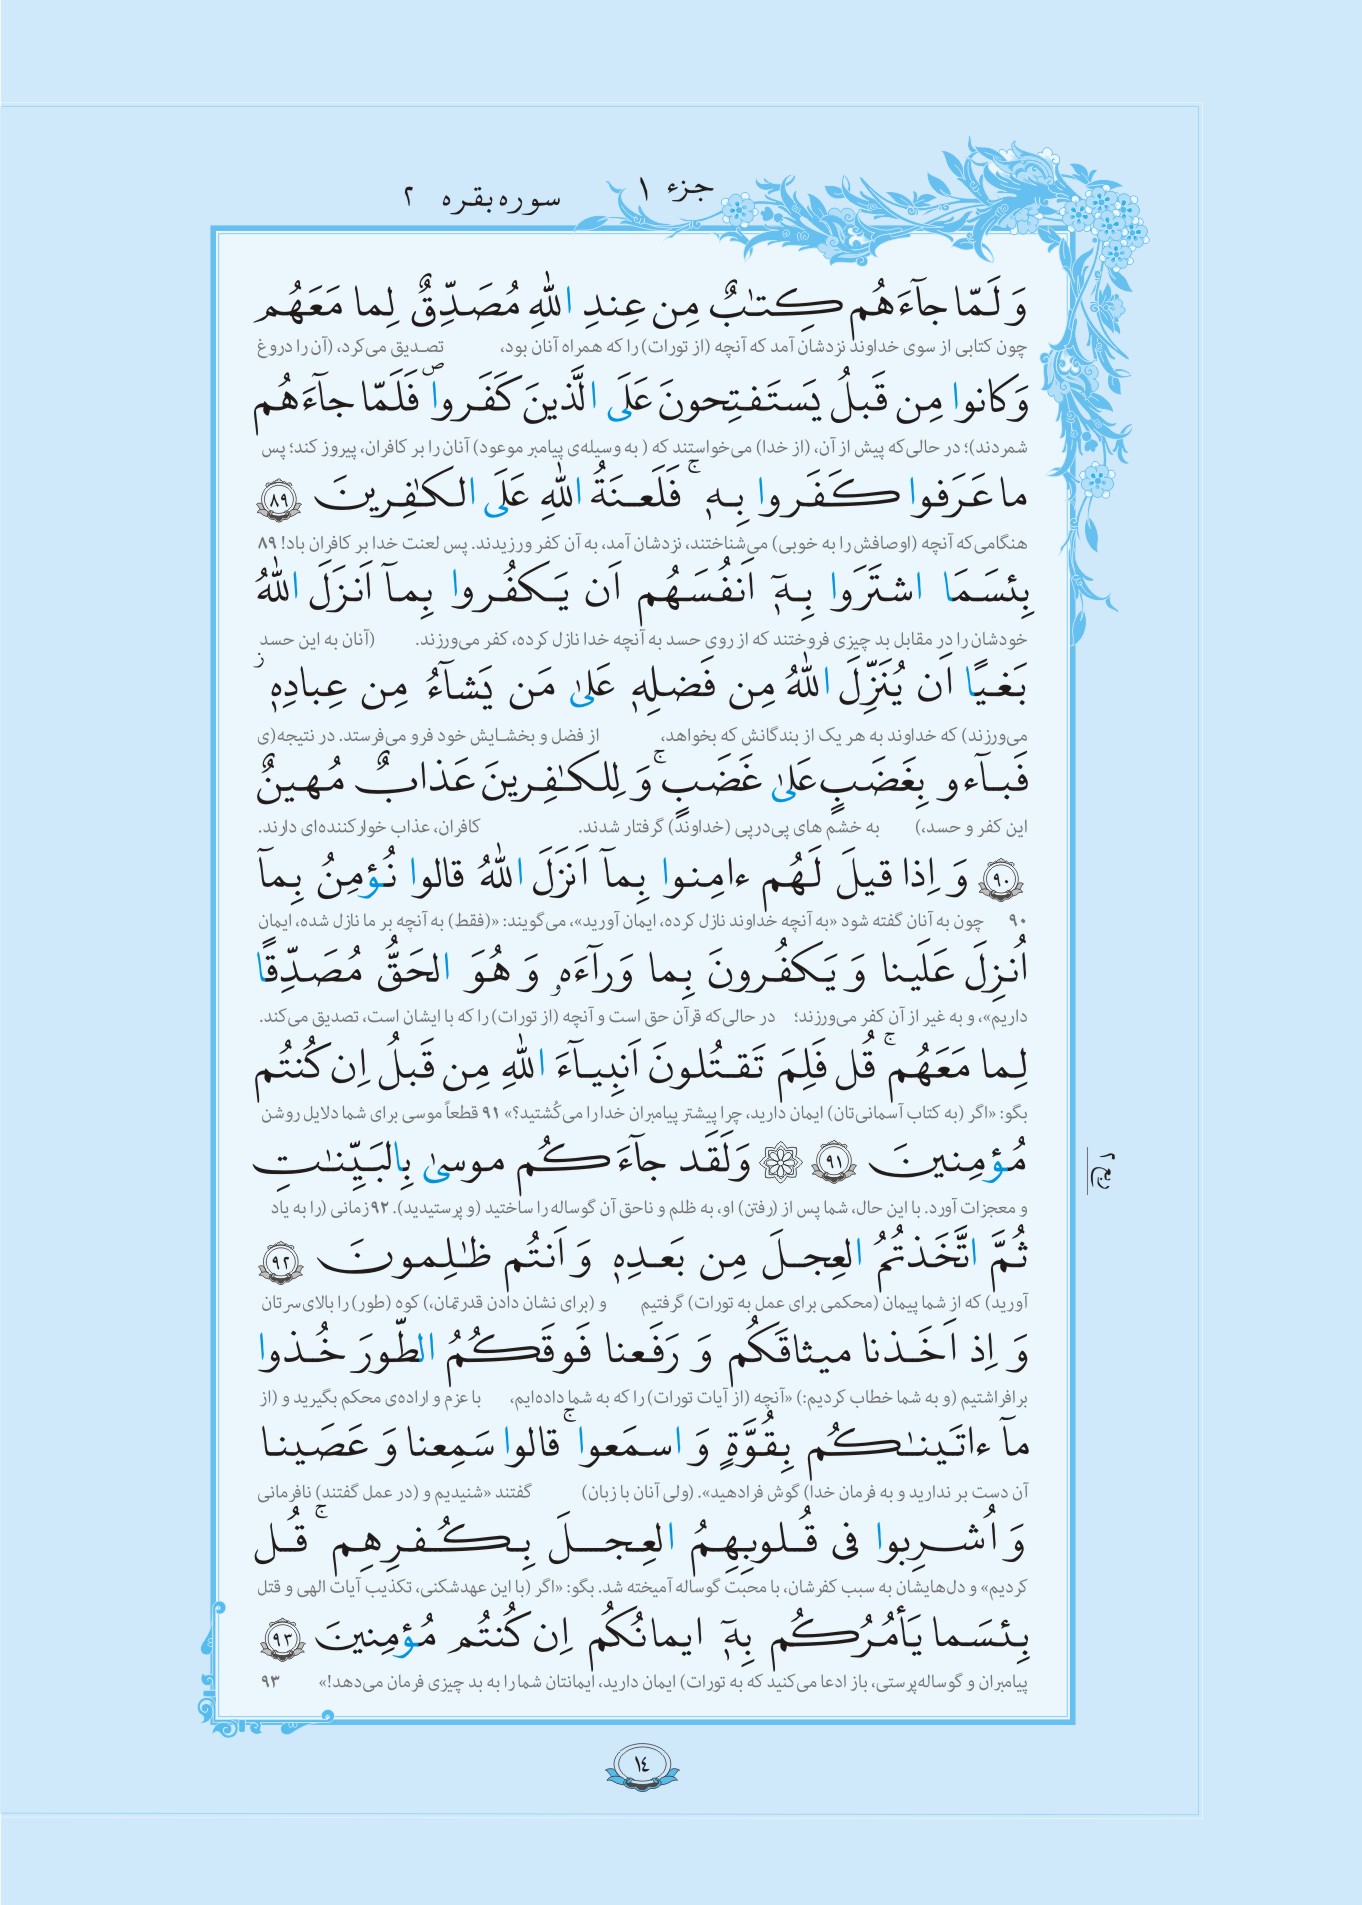 جزء ۱
سوره بقره ۲
وَ لَمّا جآءَهُم کِتٰبٌ مِن عِندِ اللّٰهِ مُصَدِّقٌ لِما مَعَهُم
چون کتابی از سوی خداوند نزدشان آمد که آنچه (از تورات) را که همراه آنان بود، تصدیق می‌کرد، (آن را دروغ
وَ کانوا مِن قَبلُ یَستَفتِحونَ عَلَی الَّذینَ کَفَروا ۖ فَلَمّا جآءَهُم
شمردند)؛ در حالی‌که پیش از آن، (از خدا) می‌خواستند که ( به وسیله‌ی پیامبر موعود) آنان را بر کافران، پیروز کند؛ پس
ما عَرَفوا کَفَروا بِهٖ ۚ فَلَعنَةُ اللّٰهِ عَلَی الکٰفِرینَ ﴿۸۹﴾
هنگامی‌که آنچه (اوصافش را به خوبی) می‌شناختند، نزدشان آمد، به آن کفر ورزیدند. پس لعنت خدا بر کافران باد! ۸۹
بِئسَمَا اشتَرَوا بِهٖٓ اَنفُسَهُم اَن یَکفُروا بِمآ اَنزَلَ اللّٰهُ
خودشان را در مقابل بد چیزی فروختند که از روی حسد به آنچه خدا نازل کرده، کفر می‌ورزند. (آنان به این حسد
بَغیًا اَن یُنَزِّلَ اللّٰهُ مِن فَضلِهٖ عَلیٰ مَن یَشآءُ مِن عِبادِهٖ ز
می‌ورزند) که خداوند به هر یک از بندگانش که بخواهد، از فضل و بخشایش خود فرو می‌فرستد. در نتیجه(ی
فَبآءو بِغَضَبٍ عَلیٰ غَضَبٍ ۚ وَ لِلکٰفِرینَ عَذابٌ مُهینٌ
این کفر و حسد،) به خشم های پی‌درپی (خداوند) گرفتار شدند. کافران، عذاب خوارکننده‌ای دارند.
﴿۹۰﴾ وَ اِذا قیلَ لَهُم ءامِنوا بِمآ اَنزَلَ اللّٰهُ قالوا نُؤمِنُ بِمآ
۹۰ چون به آنان گفته شود «به آنچه خداوند نازل کرده، ایمان آورید»، می‌گویند: «(فقط) به آنچه بر ما نازل شده، ایمان
اُنزِلَ عَلَینا وَ یَکفُرونَ بِما وَرآءَهٗ وَ هُوَ الحَقُّ مُصَدِّقًا
داریم»، و به غیر از آن کفر می‌ورزند؛ در حالی‌که قرآن حق است و آنچه (از تورات) را که با ایشان است، تصدیق می‌کند.
لِما مَعَهُم ۚ قُل فَلِمَ تَقتُلونَ اَنبِیآءَ اللّٰهِ مِن قَبلُ اِن کُنتُم
بگو: «اگر (به کتاب آسمانی‌تان) ایمان دارید، چرا پیشتر پیامبران خدا را می‌کُشتید؟» ۹۱ قطعاً موسی برای شما دلایل روشن
مُؤمِنینَ ﴿۹۱﴾ ۞ وَ لَقَد جآءَکُم موسیٰ بِالبَیِّنٰتِ
و معجزات آورد. با این حال، شما پس از (رفتن) او، به ظلم و ناحق آن گوساله را ساختید (و پرستیدید). ۹۲ زمانی (را به یاد
ثُمَّ اتَّخَذتُمُ العِجلَ مِن بَعدِهٖ وَ اَنتُم ظٰلِمونَ ﴿۹۲﴾
آورید) که از شما پیمان (محکمی برای عمل به تورات) گرفتیم و (برای نشان دادن قدرتمان،) کوه (طور) را بالای سرتان
وَ اِذ اَخَذنا میثاقَکُم وَ رَفَعنا فَوقَکُمُ الطّورَ خُذوا
برافراشتیم (و به شما خطاب کردیم:) «آنچه (از آیات تورات) را که به شما داده‌ایم، با عزم و اراده‌ی محکم بگیرید و (از
مآ ءاتَینٰکُم بِقُوَّةٍ وَ اسمَعوا ۚ قالوا سَمِعنا وَ عَصَینا
آن دست بر ندارید و به فرمان خدا) گوش فرادهید». (ولی آنان با زبان) گفتند «شنیدیم و (در عمل گفتند) نافرمانی
وَ اُشرِبوا فی قُلوبِهِمُ العِجلَ بِکُفرِهِم ۚ قُل
کردیم» و دل‌هایشان به سبب کفرشان، با محبت گوساله آمیخته شد. بگو: «اگر (با این عهدشکنی، تکذیب آیات الهی و قتل
بِئسَما یَأمُرُکُم بِهٖٓ ایمانُکُم اِن کُنتُم مُؤمِنینَ ﴿۹۳﴾
پیامبران و گوساله‌پرستی، باز ادعا می‌کنید که به تورات) ایمان دارید، ایمانتان شما را به بد چیزی فرمان می‌دهد!» ۹۳
ربع ۲
١٤